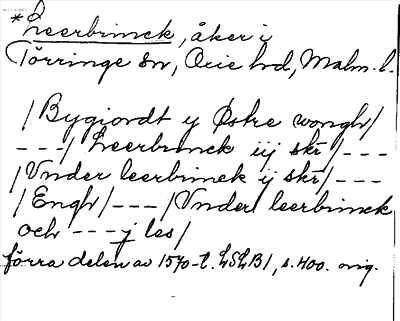 *Leerbrinck, åker i
Törringe sn, Oxie hd, Malm. l.
/Bygiordt y Østre wongh/
---/ Leerbrinck iij skr/---
/Vnder leerbrinck ij skr/---
/Engh/---/Vnder leerbrinck
och ---j les/
förra delen av 1570-t. LSLB1, s. 400. orig.